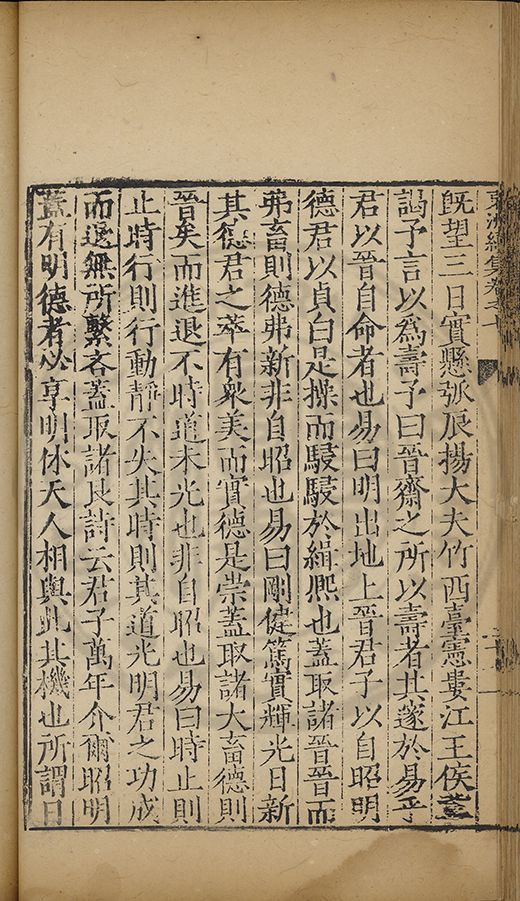 東洲續集卷之十
既望三日實懸弧辰揚大夫竹西臺憲婁江王侯
謁予言以為壽予曰晉齋之所以壽者其邃於易乎
君以晉自命者也易曰明出地上晉君子以自昭明
德君以貞白是操而駸駸於緝熙也蓋取諸晉晉而
弗畜則德弗新非自昭也易曰剛健篤實輝光日新
其德君之萃有衆美而實德是崇蓋取諸大畜德則
晉矣而進退不時道未光也非自昭也易曰時止則
止時行則行動靜不失其時則其道光明君之功成
而退無所繫吝蓋取諸艮詩云君子萬年介爾昭明
蓋有明德者必享明休天人相與此其機也所謂日